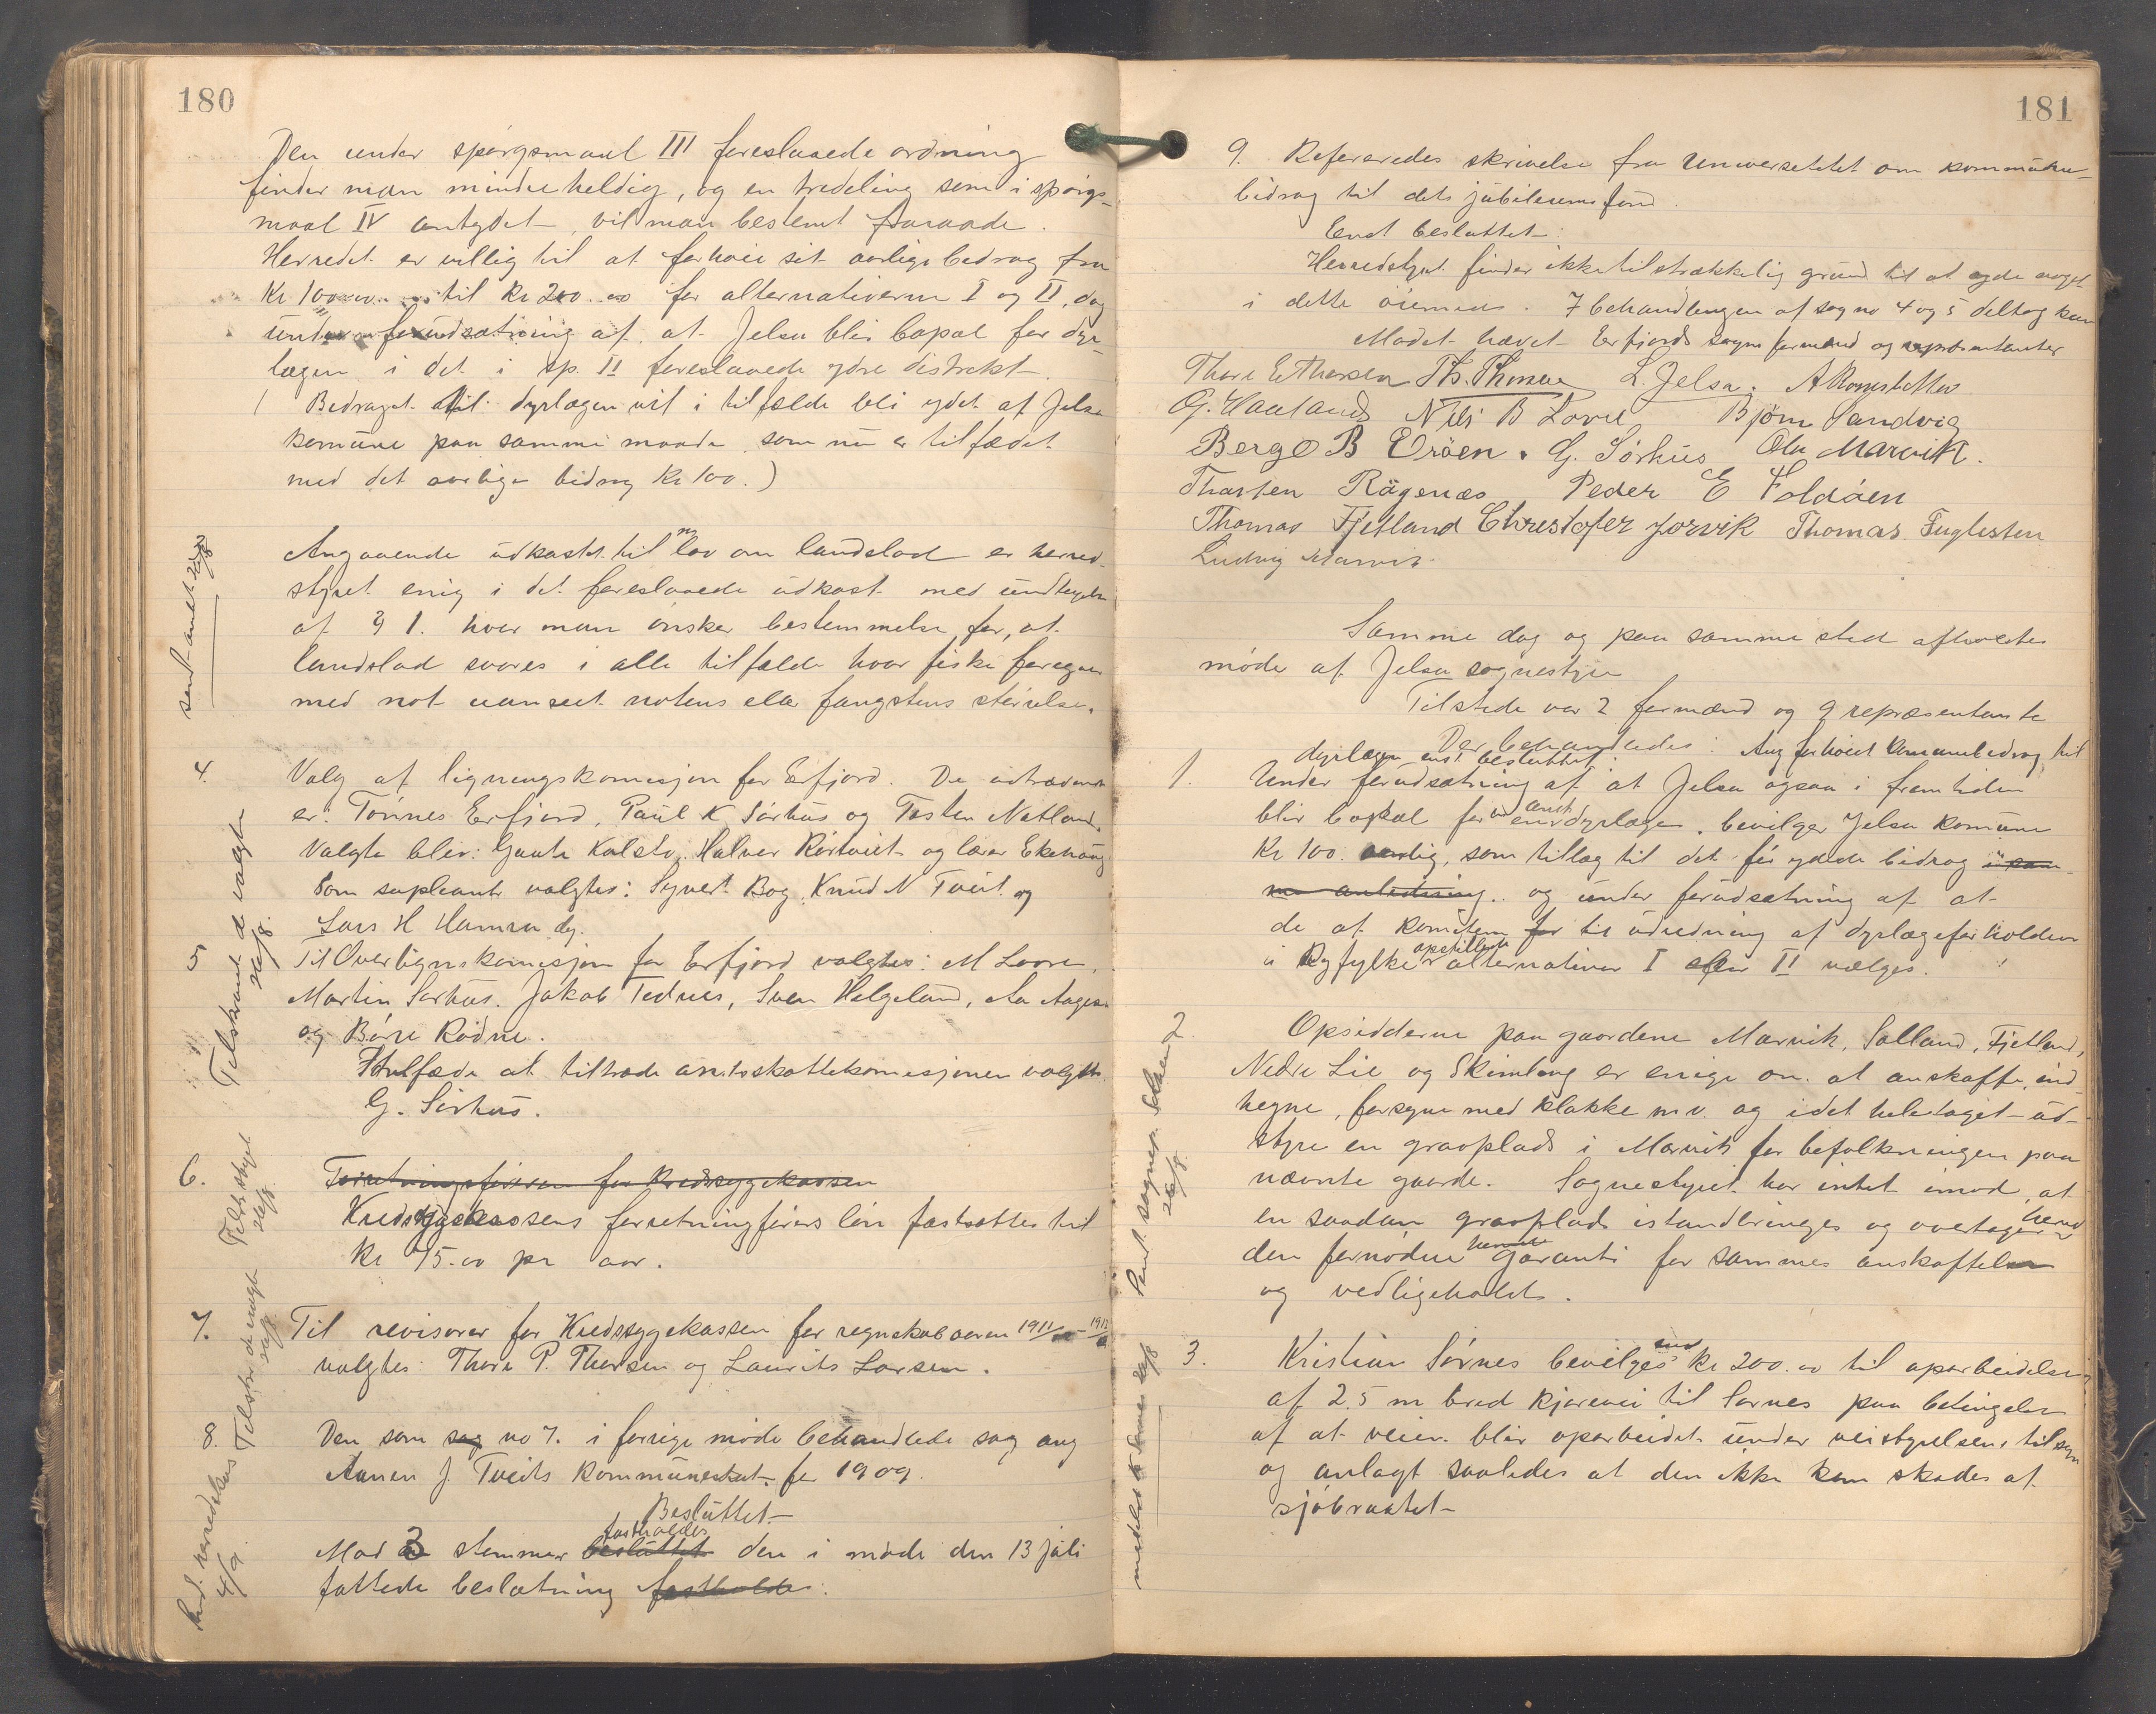 180
Den under spørgsmaal III foreslaaede ordning
finder man mindre heldig, og en tredeling som i spørgs-
maal IV antydet, vil man bestemt fraraade.
Herredet er villig til at forhøie sit aarlige bedrag fra
Kr 100.00 til Kr 200.00 for alternativerne I og II, dog
under forudsætning af at Jelsa blir bopæl for dyr-
lægen i det i sp. II foreslaaede ydre distrikt.
( Bedraget til dyrlægen vil i tilfælde bli ydet af Jelsa
komune paa samme maade som nu er tilfædet
med det aarlige bidrag Kr 100.)
sendt amtet
Angaaende udkastet til lov om landslod er herred-
styret enig i det foreslaaede udkast med undtagelse
af § 1. hvor man ønsker bestemmelse for, at
landslod svares i alle tilfælde hvor fiske foregaar
med not uanseet notens eller fangstens størrelse.
4. Valg af ligningskomisjon for Erfjord. De udtrædende
er: Tønnes Erfjord, Paul K Sørhus og Tosten Natland.
Valgte blev: Gaute Kolstø, Halvor Rørtveit og lærer Ekehaug
Som supleanter valgtes: Syvert Bog, Knud N Tveit og
Lars H Hamra dy.
5 Til Overlignskomisjon for Erfjord valgtes: M Loore,
Martin Sørhus, Jakob Tednes, Sven Helgeland, Aa Aagesen
og Børe Rødne.
Tilskrevet de valgte
26/8.
Itilfæde at tiltræde amtsskattekomisjonen valgtes
G. Sørhus.
6. Forretningsføreren for Kredssygekassen
Kredssygekassens forretningførers løn fastsættes til
Kr 75.00 pr aar.
Tilskr. styret
26/8.
7. Til revisorer for Kredssygekassen for regnskabsaaren 1911 - 1912
valgtes: Thore P. Thorsen og Laurits Larsen.
Tilskr. de valgte
26/8
8. Den som sag no 7. i forrige møde behandlede sag ang
Aanen J. Tveits kommuneskat for 1909.
Besluttet
fastholdes
Mod 3 stemmer besluttet den i møde den 13 juli
fattede beslutning fastholdes.
4/9.
181
9. Refereredes skrivelse fra Universitetet om kommune-
bidrag til dets jubileumsfond.
Enst besluttet:
Herredstyret finder ikke tilstrækkelig grund til at yde noget
i dette øiemed. I behandlingen af sag no 4 og 5 deltog kun
Mødet hævet Erfjords sogns formænd og repræsentanter
Thore E Thorsen Th. Thorsen L. Jelsa.
G. Haaland Nils B Lovra Bjørn Sandvig
Berge B Erøen. G. Sørhus Ola Marvik.
Thorsten Rägenæs Peder E Foldøen
Thomas Fjetland Christofer Jorvik Thomas Fuglesten
Ludvig Marvik
Samme dag og paa samme sted afholdtes
møde af Jelsa sognestyre
Tilstede var 2 formænd og 9 repræsentanter
Der behandledes: Ang forhøiet Komunebedrag til
dyrlægen enst besluttet:
1. Under forudsætning af at Jelsa ogsaa i fremtiden
blir bopæl for en amtsdyrlæge, bevilger Jelsa komune
Kr 100. aarlig, som tillæg til det før ydede bidrag i sam-
me anledning.. og under forudsætning af at
de af komiteen for til udredning af dyrlægeforholdene
i Ryfylke opstillede alternativer I eller II vælges.
2. Opsidderne paa gaardene Marvik, Salland, Fjetland,
Nedre Lie og Skimlang er enige om at anskaffe, ind-
hegne, forsyne med klokke m.v. og i det heletaget ud-
styre en gravplads i Marvik for befolkningen paa
nævnte gaarde. Sognestyret har intet imod, at
en saadan gravplads istandbringes og overtager herved
den fornødne garanti for sammes anskaffelse
og vedligehold.
26/8.
3. Kristian Sørnes bevilges kr 200.00 til oparbeidelse
af 2.5 m bred kjørevei til Sørnes paa betingelse
af at veien blir oparbeidet under veistyrelsens tilsyn
og anlagt saaledes at den ikke kan skades af
sjøbraattet